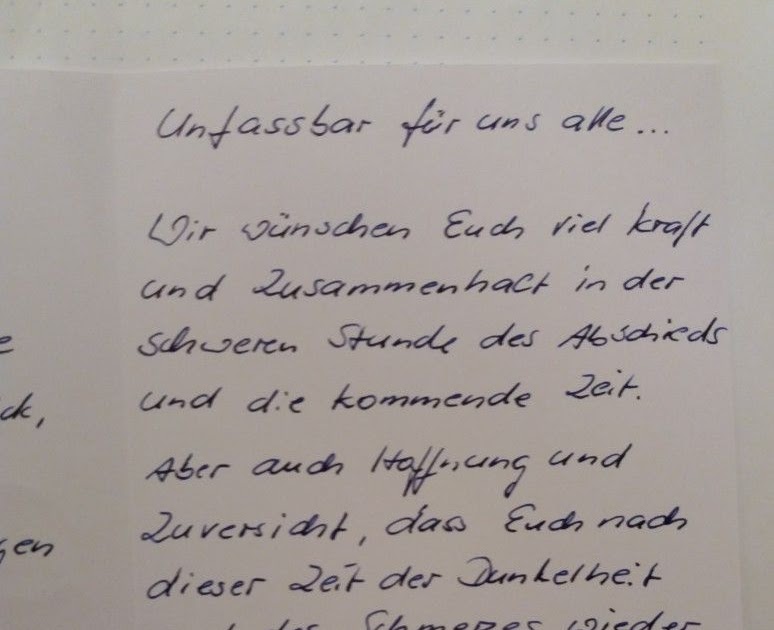 Unfassbar für uns alle...
Wir wünschen Euch viel Kraft
und Zusammenhalt in der
schweren Stunde des Abschieds
und die kommende Zeit.
Aber auch Hoffnung und
Zuversicht, dass Euch nach
dieser Zeit der Dunkelheit
und des Schmerzes wieder
e
ck,
gen